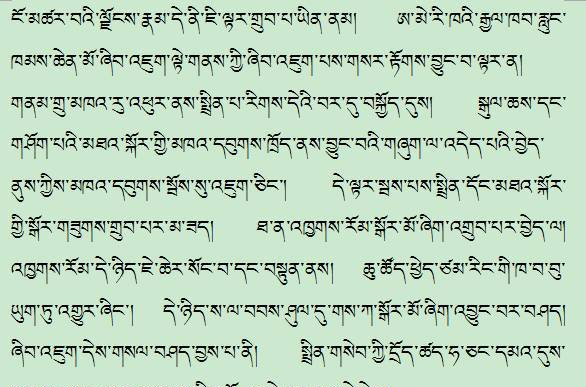 ངོ་མཚར་བའི་ལྗོངས་རྣམ་དེ་ནི་ཇི་ལྟར་གྲུབ་པ་ཡིན་ནམ། ཨ་མེ་རི་ཁའི་རྒྱལ་ཁབ་རླུང་
ཁམས་ཆེན་མོ་ཞིབ་འཇུག་ལྟེ་གནས་ཀྱི་ཞིབ་འཇུག་པས་གསར་རྟོགས་བྱུང་བ་ལྟར་ན།
གནམ་གྲུ་མཁའ་རུ་འཕུར་ནས་སྤྲིན་པ་རིགས་དེའི་བར་དུ་བསྐྱོད་དུས། སྒྲུལ་ཆས་དང་
གཤོག་པའི་མཐའ་སྐོར་གྱི་མཁའ་དབུགས་ཁྲོད་ནས་བྱུང་བའི་གཞུག་ལ་འདེད་པའི་བྱེད་
ནུས་ཀྱིས་མཁའ་དབུགས་སྤོས་སུ་འཇུག་ཅིང་། དེ་ལྟར་སྦས་པས་སྤྲིན་དོང་མཐའ་སྐོར་
གྱི་སྒོར་གཟུགས་གྲུབ་པར་མ་ཟད། ཐ་ན་འཁྱགས་རོམ་སྒོར་མོ་ཞིག་འགྲུབ་པར་བྱེད་ལ།
འཁྱགས་རོམ་དེ་ཉིད་ཇེ་ཆེར་སོང་བ་དང་བསྟུན་ནས། ཆུ་ཚོད་ཕྱེད་ཙམ་རིང་གི་ཁ་བ་བུ་
ཡུག་ཏུ་འགྱུར་ཞིང་། དེ་ཉིད་ས་ལ་བབས་ཤུལ་དུ་གས་ཀ་སྒོར་མོ་ཞིག་འབྱུང་བར་བཤད།
ཞིབ་འཇུག་དེས་གསལ་བཤད་བྱས་པ་ནི། སྤྲིན་གསེབ་ཀྱི་དྲོད་ཚད་ཧ་ཅང་དམའ་དུས་